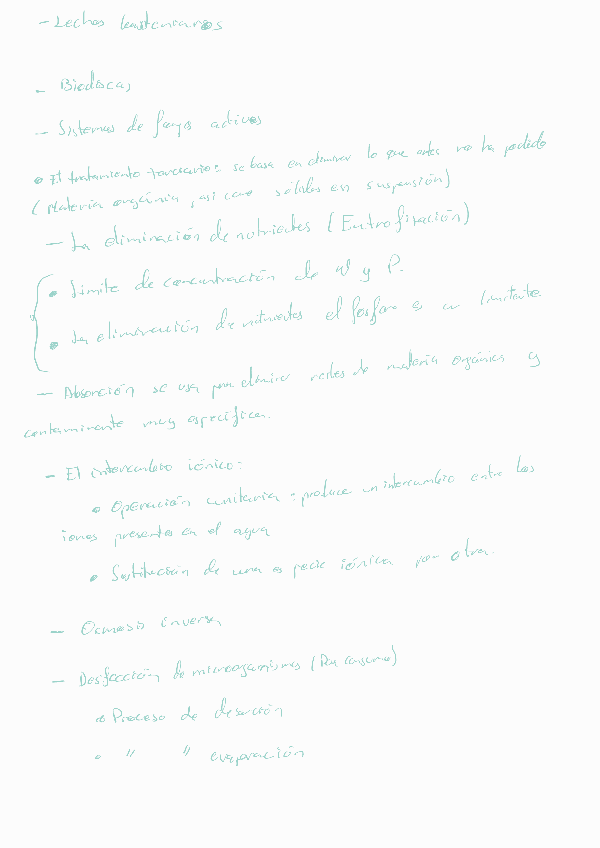 - Lechos bacterianos
- Biodiscos
- Sistemas de fangos activos
• El tratamiento terciario: se basa en eliminar lo que antes no ha podido
(Materia orgánica, así como sólidos en suspensión)
- La eliminación de nutrientes (Eutrofización)
• Limite de concentración de N y P.
• La eliminación de nutrientes el fosforo es un limitante.
- Absorción se usa para eliminar restos de materia orgánica y
contaminante muy especifica.
- El intercambio iónico:
• Operación unitaria: produce un intercambio entre los
iones presentes en el agua
• Sustitución de una especie iónica por otra.
- Osmosis inversa
- Desifección de microorganismos (Para consumo)
• Proceso de desorción
• " " evaporación